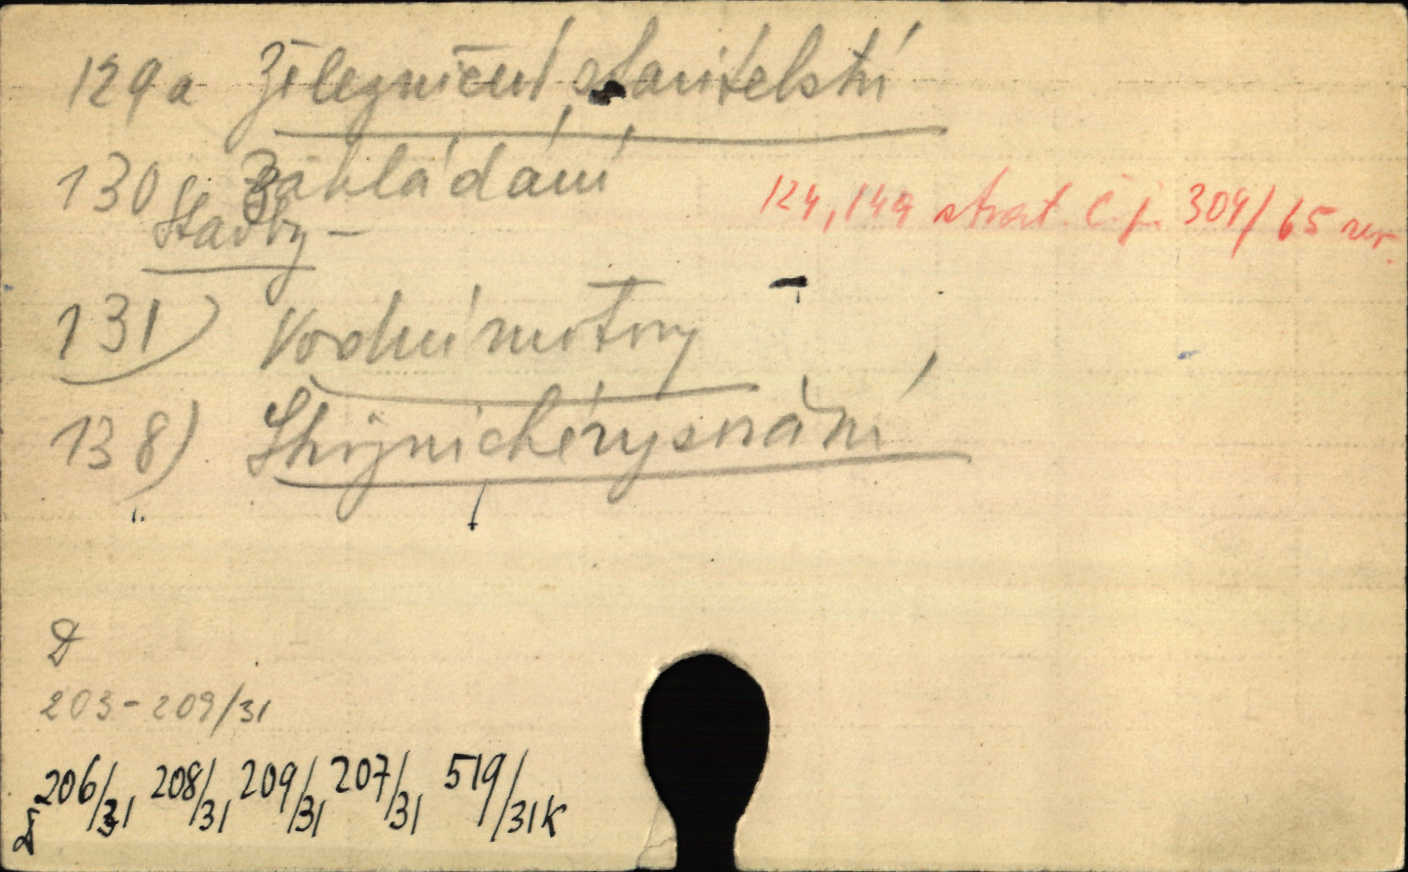 129a Železniční stavitelství
130 Zakládání
Stavby –
124, 149 strat. č.j. 309/65 rev.
131) Vodní motory
138)
D
203-209/31
206/31 208/31 209/31 207/31 519/31K